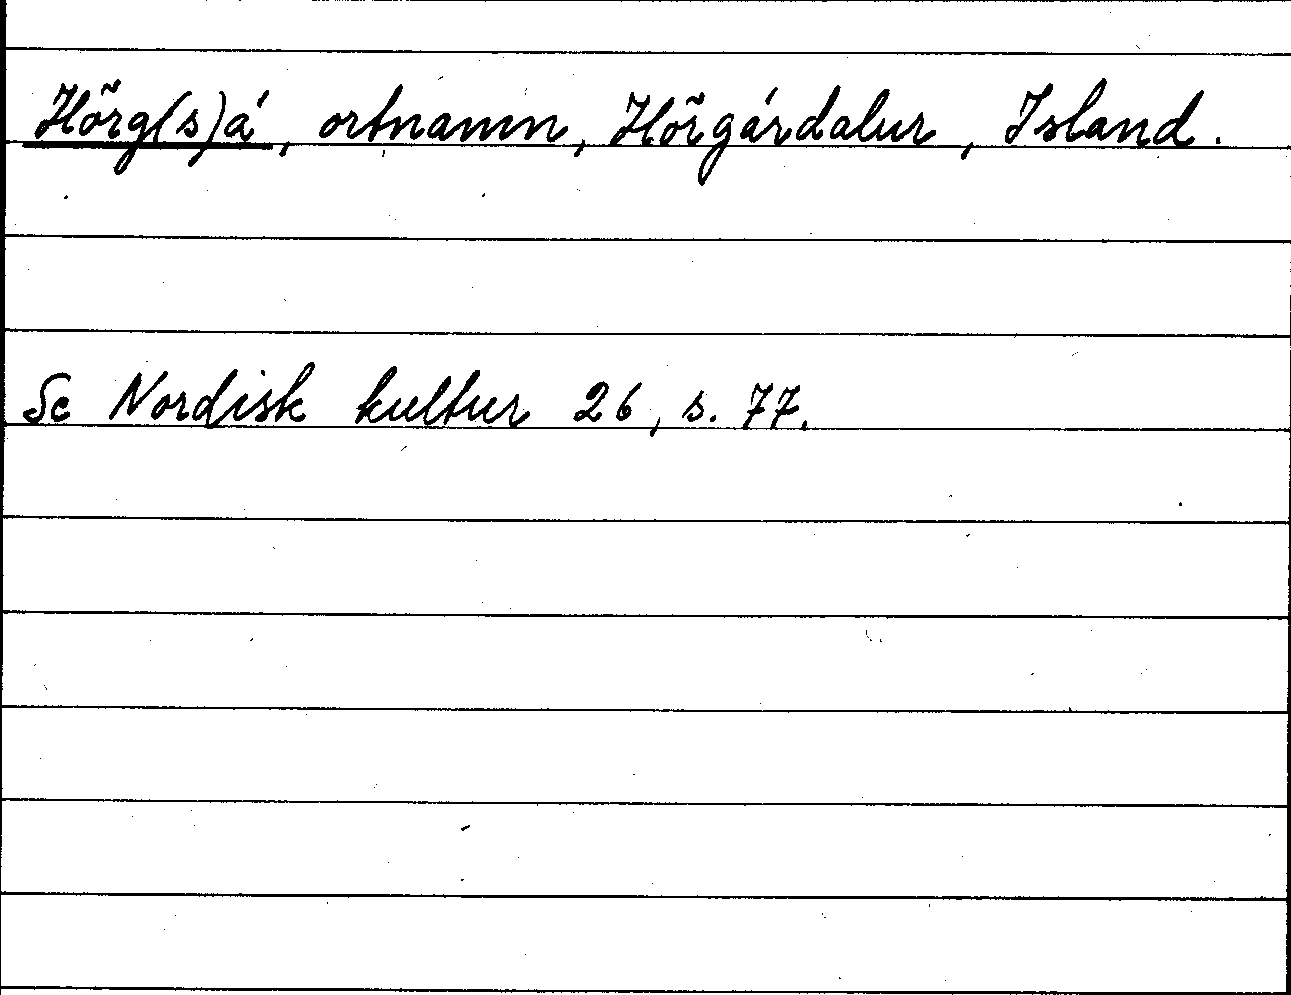 Hörg(s)á, ortnamn, Hörgárdalur, Island.
Se Nordisk kultur 26, s. 77.